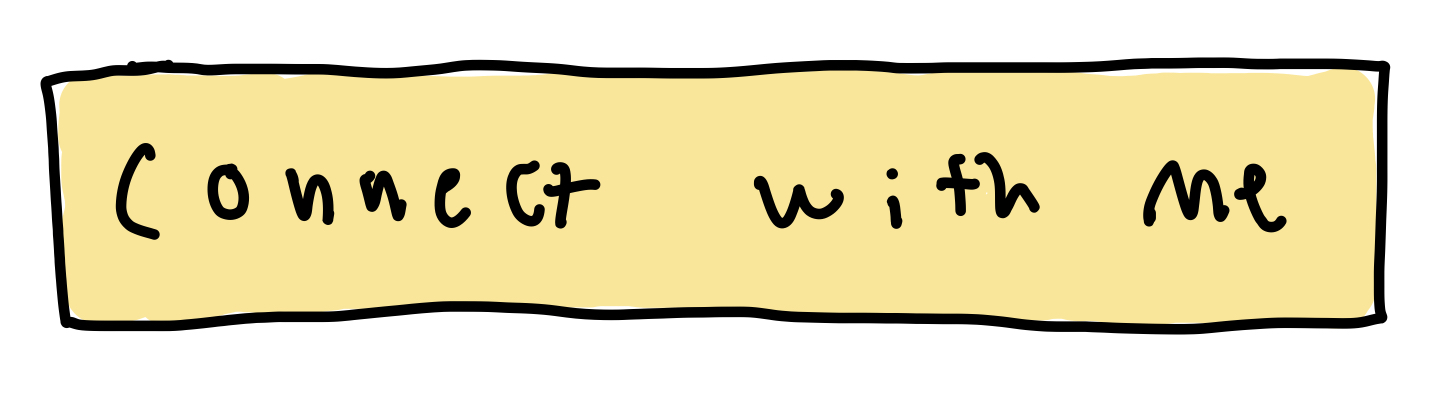 Connect with me